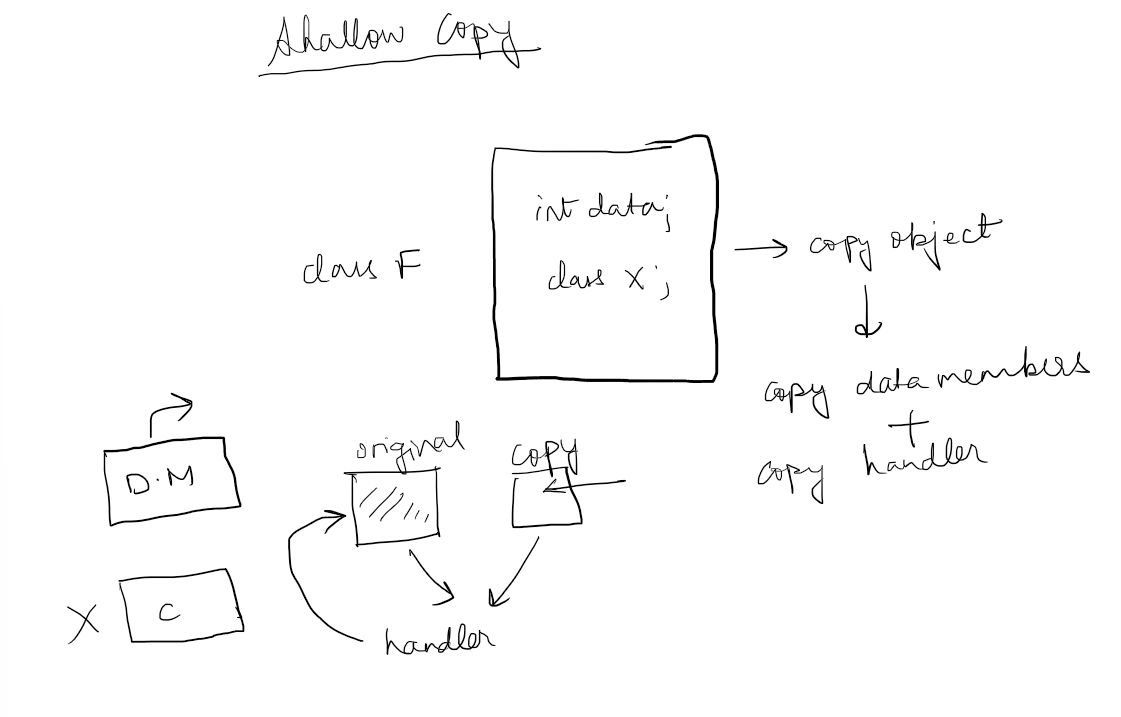 Shallow Copy
int data;
class F
class X;
copy object
copy data members
+
copy handler
original
copy
D.M
X
C
handler